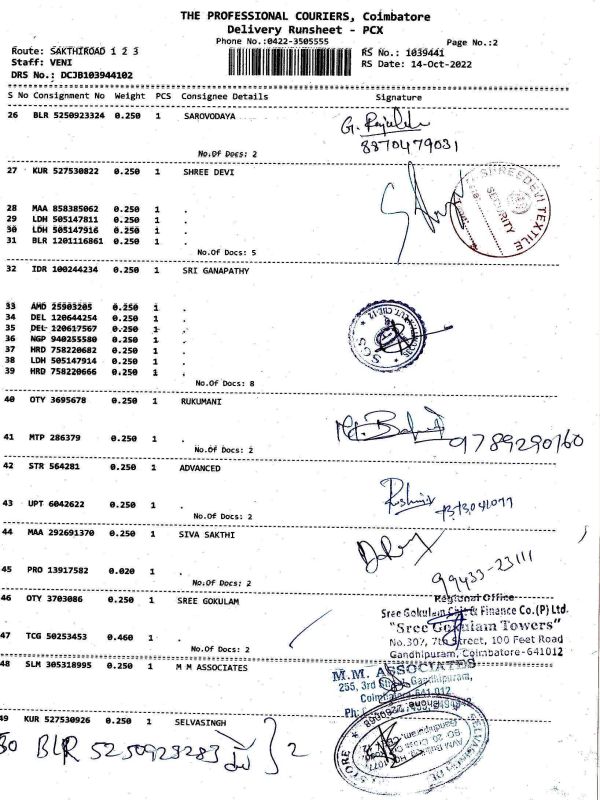 THE PROFESSIONAL COURIERS, Coimbatore
Delivery Runsheet - PCX
Phone No.:0422-3505555
Page No.:2
Route: SAKTHIROAD 1 2 3
RS No.: 1039441
Staff: VENI
RS Date: 14-Oct-2022
DRS No.: DCJB103944102
S No Consignment No Weight PCS Consignee Details Signature
26 BLR 5250923324 0.250 1 SAROVODAYA
G.
8870479031
No.Of Docs: 2
27 KUR 527530822 0.250 1 SHREE DEVI
SHREEDEVI TEXTILE
SECURITY
28 MAA 858385062 0.250 1 .
29 LDH 505147811 0.250 1 .
30 LDH 505147916 0.250 1 .
31 BLR 1201116861 0.250 1 .
No.Of Docs: 5
32 IDR 100244234 0.250 1 SRI GANAPATHY
33 AMD 25903205 0.250 1 .
34 DEL 120644254 0.250 1 .
35 DEL 120617567 0.250 1 .
36 NGP 940255580 0.250 1 .
37 HRD 758220682 0.250 1 .
38 LDH 505147914 0.250 1 .
39 HRD 758220666 0.250 1 .
SGS
No.Of Docs: 8
40 OTY 3695678 0.250 1 RUKUMANI
9789290760
41 MTP 286379 0.250 1 .
No.Of Docs: 2
42 STR 564281 0.250 1 ADVANCED
43 UPT 6042622 0.250 1 .
No.Of Docs: 2
44 MAA 292691370 0.250 1 SIVA SAKTHI
99433-23111
45 PRO 13917582 0.020 1 .
No.Of Docs: 2
46 OTY 3703086 0.250 1 SREE GOKULAM
Regional Office
Sree Gokulam Chit & Finance Co.(P) Ltd.
"Sree Gokulam Towers"
No.307, 7th Street, 100 Feet Road
Gandhipuram, Coimbatore-641012
47 TCG 50253453 0.460 1 .
No.Of Docs: 2
48 SLM 305318995 0.250 1 M M ASSOCIATES
M.M. ASSOCIATES
255, 3rd Street, Gandhipuram,
Coimbatore-641 012
49 KUR 527530926 0.250 1 SELVASINGH
STORE
50 BLR 5250923283 } 2